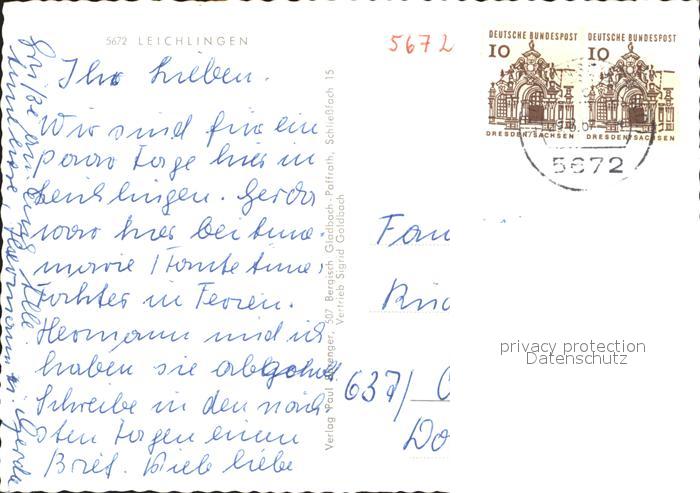 5672 LEICHLINGEN
5672
DEUTSCHE BUNDESPOST
10
DRESDEN/SACHSEN
DEUTSCHE BUNDESPOST
10
DRESDEN/SACHSEN
5672
Ihr Lieben.
Wir sind für ein
paar Tage hier in
Leichlingen. Gerda
war hier bei Anne-
marie (Tante Anne,
Tochter in Ferien.
Hermann und ich
haben sie abgeholt
Schreibe in den näch
sten Tagen einen
Brief. Viele liebe
Grüße an Euch Alle
Hermann u. Gerda
Verlag Paul 507 Bergisch Gladbach-Paffrath, Schließfach 15
Vertrieb Sigrid Goldbach
Fam
637/
Do
privacy protection
Datenschutz